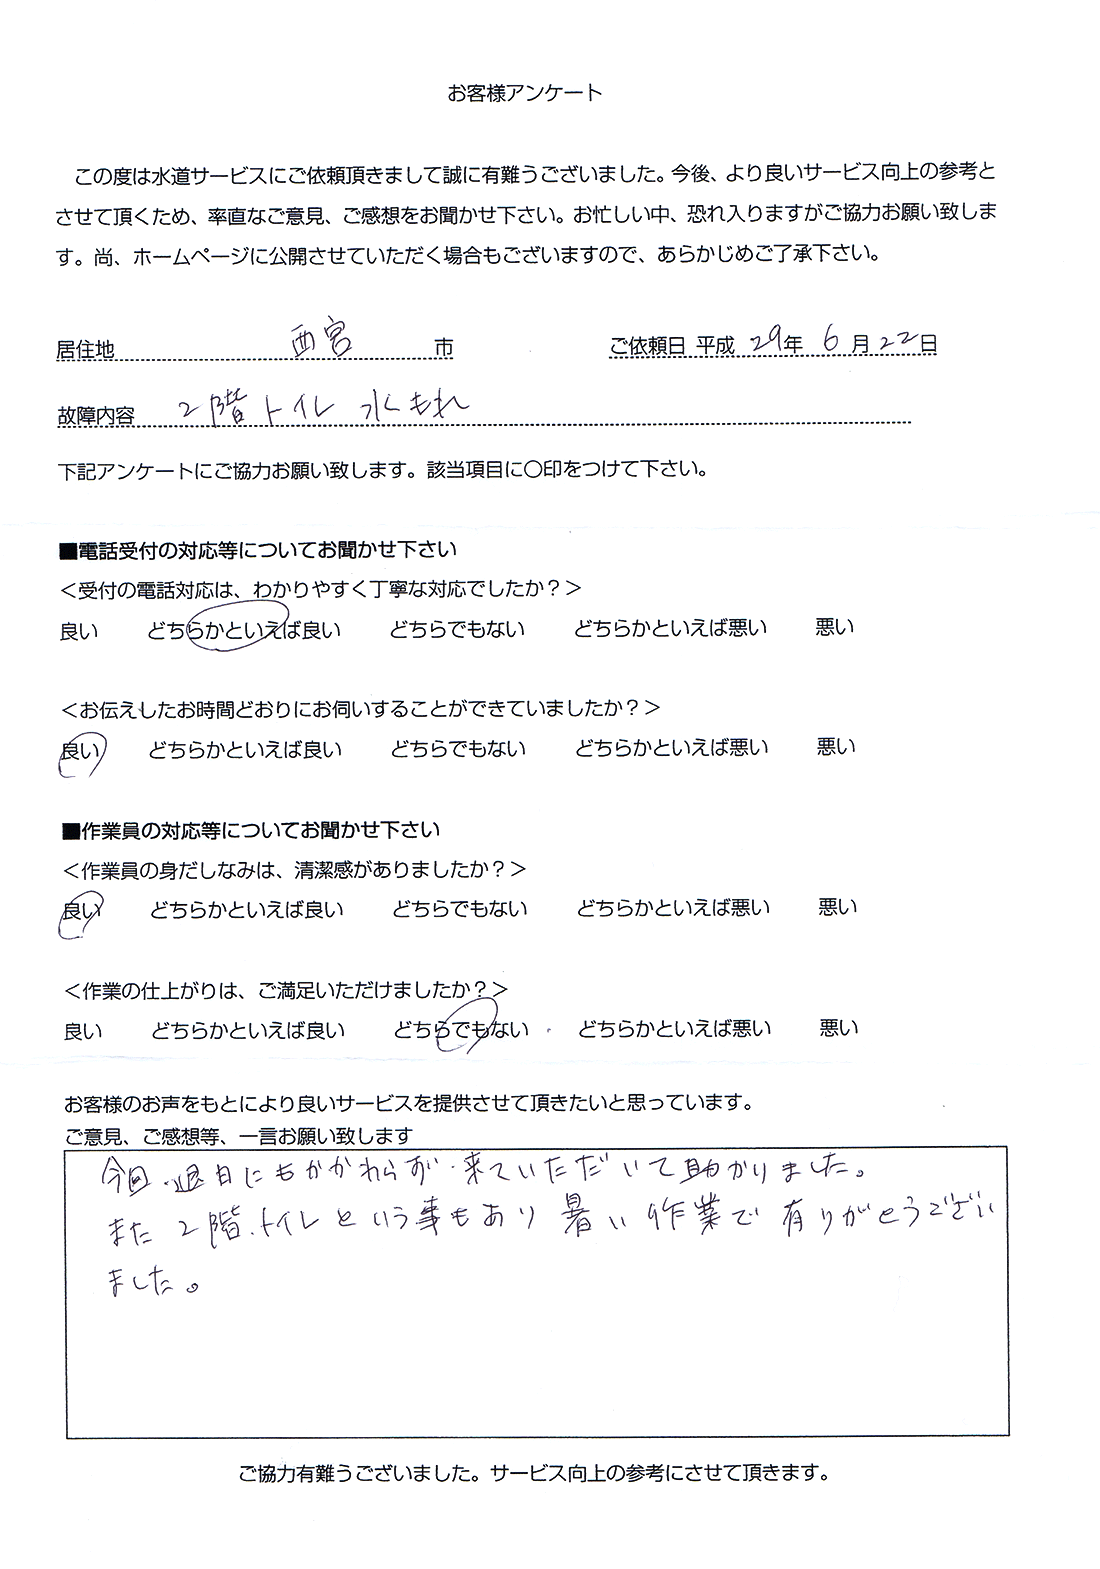 お客様アンケート
この度は水道サービスにご依頼頂きまして誠に有難うございました。今後、より良いサービス向上の参考と
させて頂くため、率直なご意見、ご感想をお聞かせ下さい。お忙しい中、恐れ入りますがご協力お願い致しま
す。尚、ホームページに公開させていただく場合もございますので、あらかじめご了承下さい。
居住地 西宮 市 ご依頼日 平成 29年 6月 22日
故障内容 2階トイレ 水もれ
下記アンケートにご協力お願い致します。該当項目に〇印をつけて下さい。
■電話受付の対応等についてお聞かせ下さい
＜受付の電話対応は、わかりやすく丁寧な対応でしたか？＞
良い どちらかといえば良い どちらでもない どちらかといえば悪い 悪い
＜お伝えしたお時間どおりにお伺いすることができていましたか？＞
良い どちらかといえば良い どちらでもない どちらかといえば悪い 悪い
■作業員の対応等についてお聞かせ下さい
＜作業員の身だしなみは、清潔感がありましたか？＞
良い どちらかといえば良い どちらでもない どちらかといえば悪い 悪い
＜作業の仕上がりは、ご満足いただけましたか？＞
良い どちらかといえば良い どちらでもない どちらかといえば悪い 悪い
お客様のお声をもとにより良いサービスを提供させて頂きたいと思っています。
ご意見、ご感想等、一言お願い致します
今回、にもかかわらず、来ていただいて助かりました。
また2階トイレという事もあり暑い作業で有りがとうござい
ました。
ご協力有難うございました。サービス向上の参考にさせて頂きます。